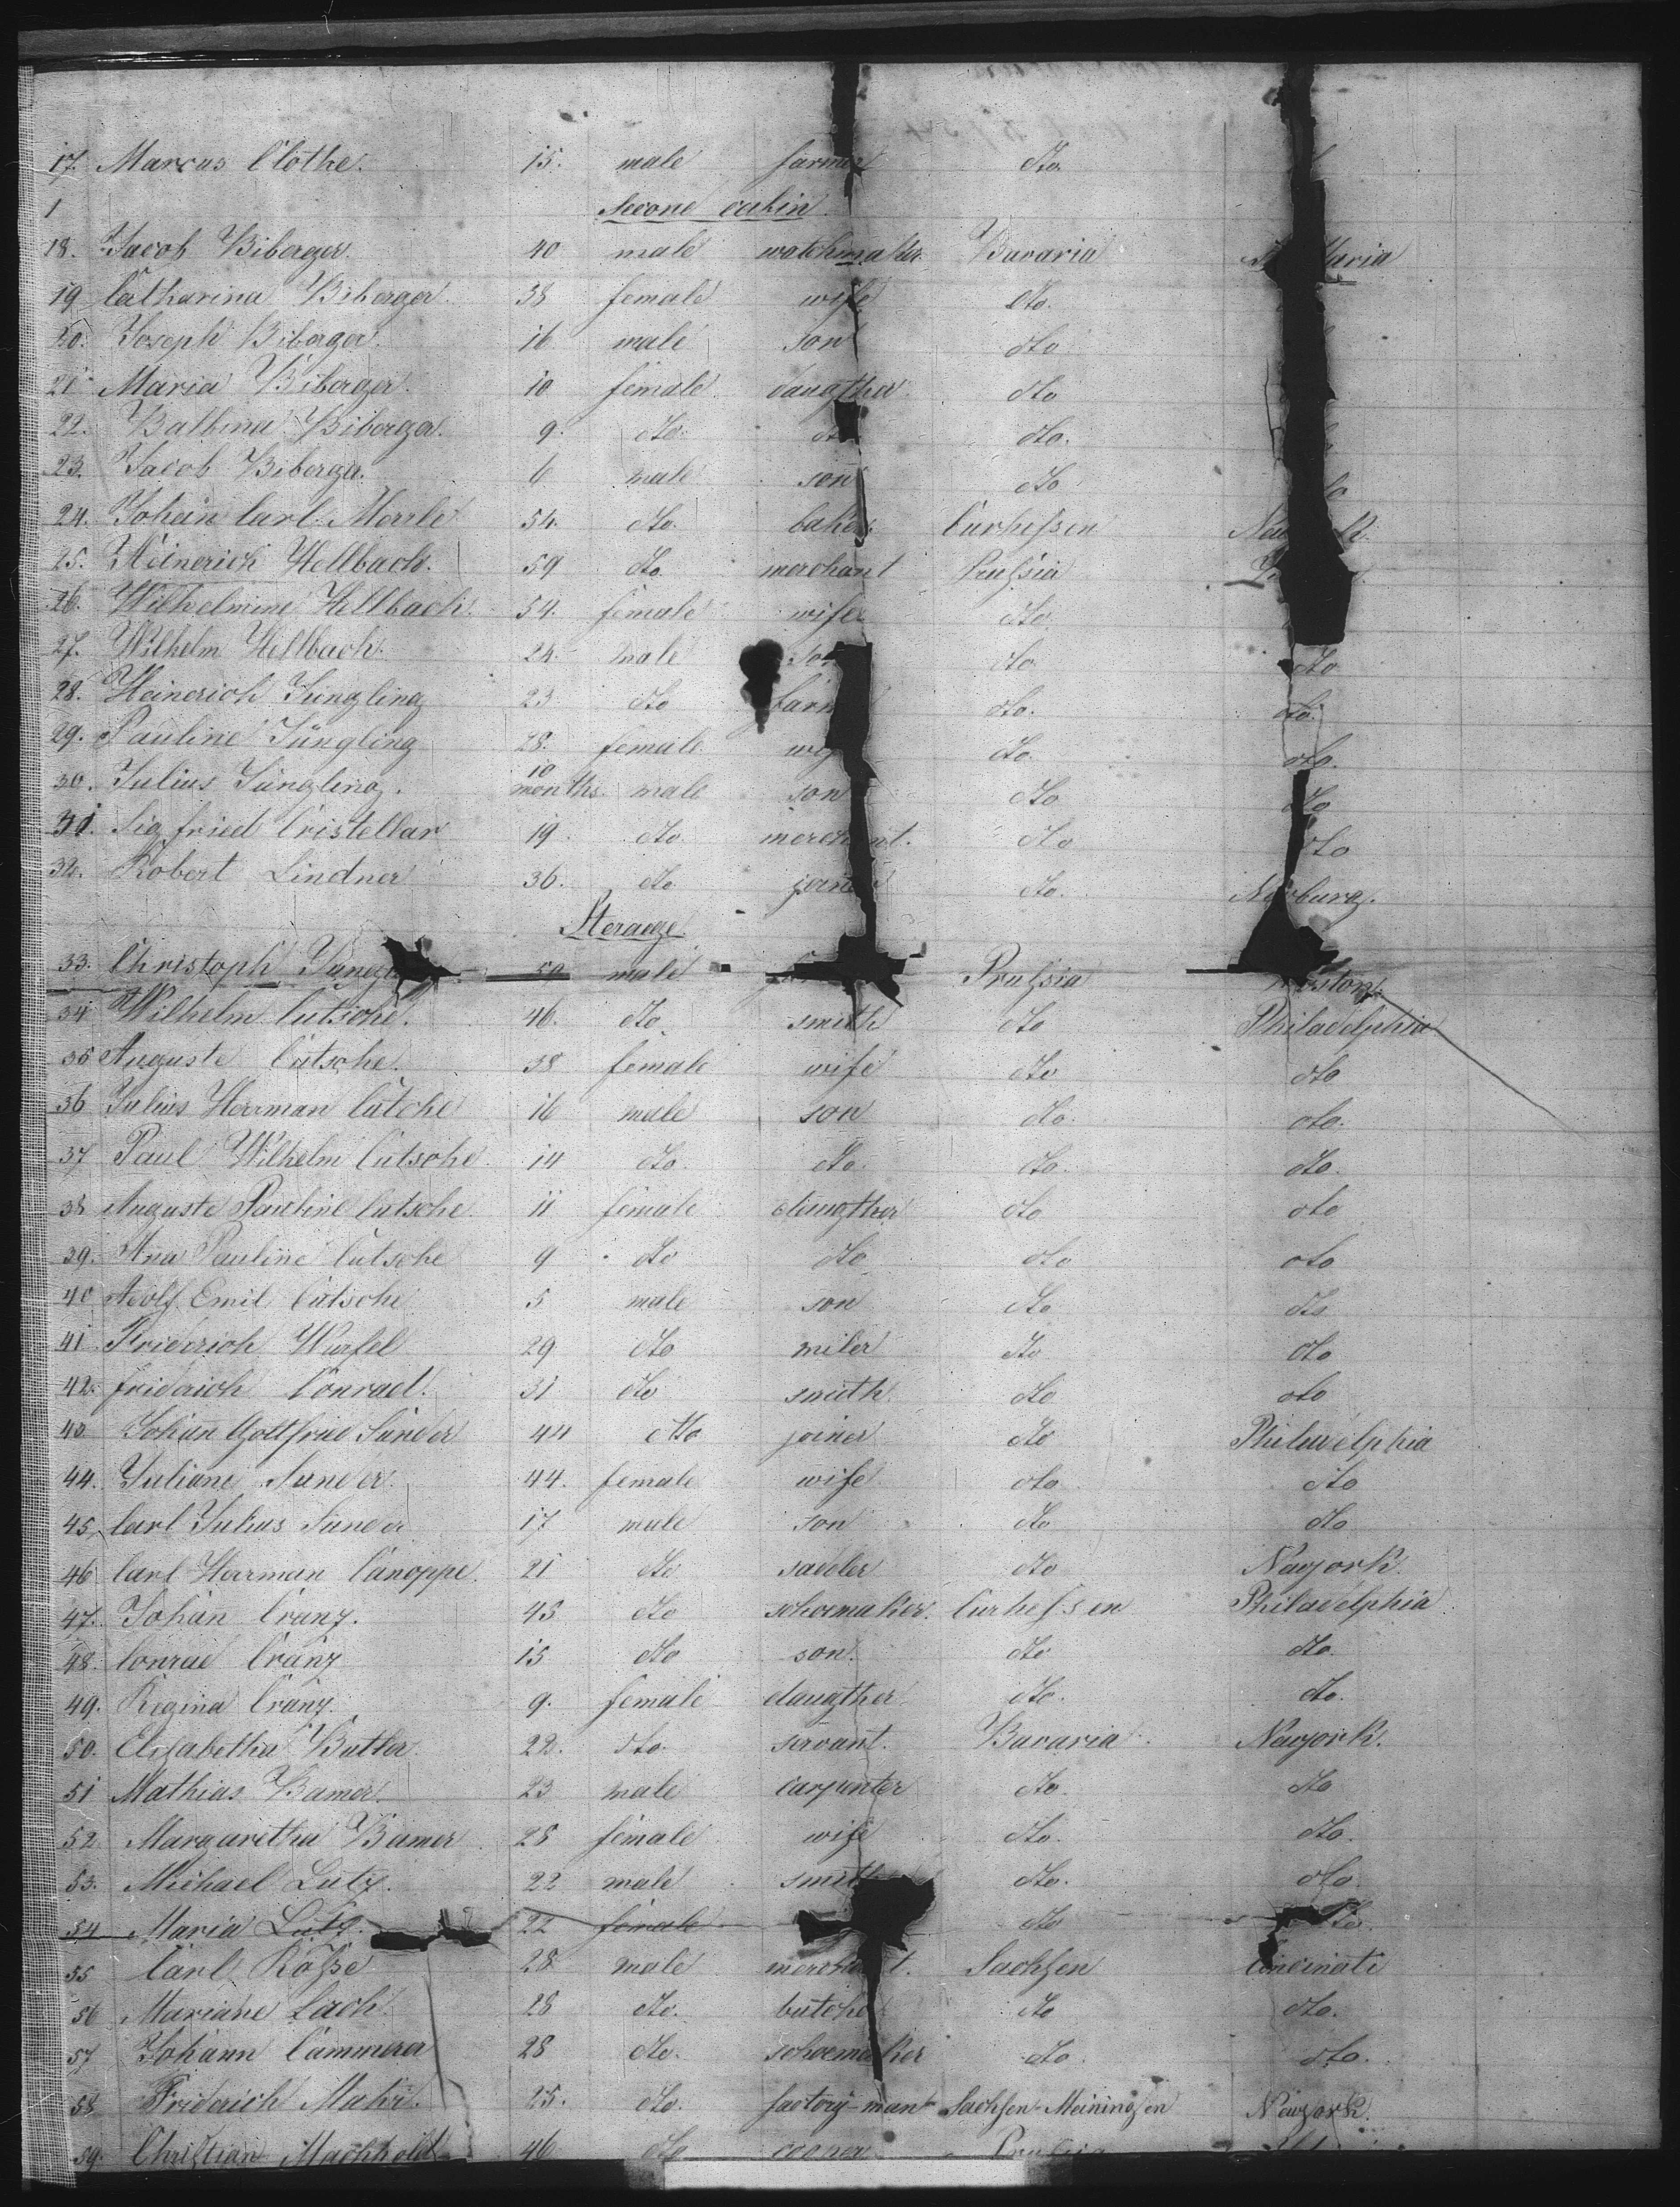 17. Marcus Clothe. 15. male farmer dto.
1 Second cabin.
18. Jacob Biberger. 40 male watchmaker Bavaria
19 Catharina Biberger. 38 female wife dto.
20. Joseph Biberger. 16 male son dto
21 Maria Biberger. 10 female daugther dto
22. Balbina Biberger. 9. dto. dto.
23. Jacob Biberger. 6 male son dto
24. Johan Carl Merrle 54. dto. baker. Curhessen
25. Heinerich Hellbach. 59 dto. merchant Prussia
26. Wilhelmine Hellbach. 54. female wife dto.
27. Wilhelm Hellbach. 24. male son dto. dto
28. Heinerich Jüngling 23 dto dto. dto.
29. Pauline Jüngling 28. female dto. dto.
30. Julius Jüngling. 10 months male son dto dto
31. Sigfried Cristellar 19. dto merchant. dto dto
32. Robert Lindner 36. dto joiner dto.
Steraege.
33. Christoph 59 male Prussia
34 Wilhelm Cutsche. 46. dto smith dto Philadelphia
35 Auguste Cutsche. 38 female wife dto dto
36 Julius Herrman Cutche 16 male son dto. dto.
37 Paul Wilhelm Cutsche. 14 dto. dto. dto. dto.
38 Auguste Pauline Cutsche 11 female daugther dto dto
39. Ana Pauline Cutsche 9 dto dto dto dto
40 Adolf Emil Cutsche 5 male son dto dto
41. Friderich Würfel 29 dto miler dto dto
42. Friderich Conrad. 31 dto smith. dto dto
43 Johan Gottfried Sander 44 dto joiner dto Philadelphia
44. Juliane Sander. 44. female wife dto dto
45. Carl Julius Sander 17 male son dto dto
46 Carl Herrman Canoppe. 21 dto sadeler dto Newyork.
47. Johan Cranz. 43 dto schoemaker. Curhessen Philadelphia
48. Conrad Cranz 15 dto son. dto dto.
49. Regina Cranz. 9. female daugther dto. dto.
50. Elisabetha Butler 22. dto. servant. Bavaria Newyork.
51 Mathias Bamer. 23 male carpenter dto. dto
52. Margaretha Bamer 28 female wife dto. dto.
53. Michael Lutz. 22 male smith dto. dto.
54 Maria Lutz. 22 female dto
55 Carl Rosse 28 male merchant. Sachsen Cincinati
56 Mariane Lach. 28 dto. butcher dto dto.
57 Johann Cammerer 28 dto. schoemaker dto. dto.
58 Friderich Mahr. 25. dto. factory-man Sachsen-Meiningsen Newyork.
59. Christian Machhold 46 dto cooper Prussia